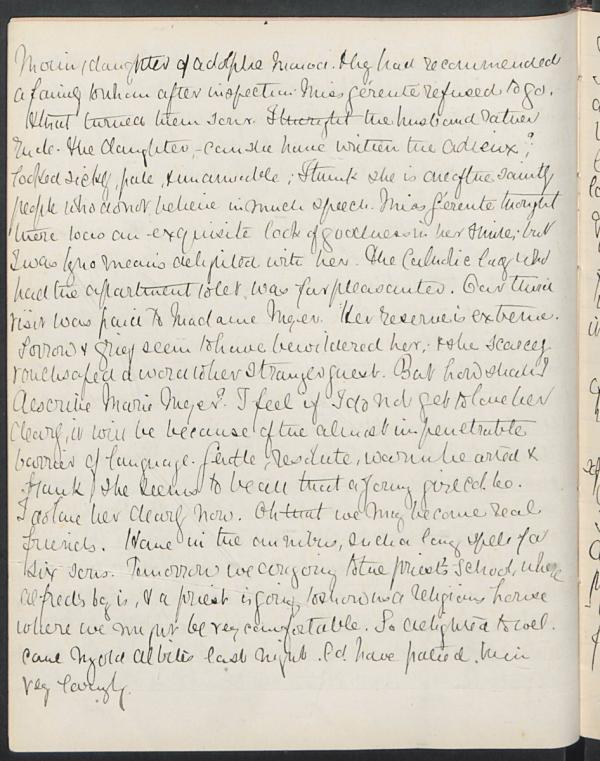 daughter of Adolphe Monod. They had recommended
a family to whom after inspection Miss Gerente refused to go.
that turned them sour. I thought the husband rather
rude. The daughter, - can she have written the adieux?,
looked sickly, pale, & unamiable; I think she is one of the saintly
people who do not believe in much speech. Miss Gerente thought
there was an exquisite look of goodness in her smile; but
I was by no means delighted with her. The Catholic lady who
had the apartment to let was far pleasanter. Our third
visit was paid to Madame Meyer. Her reserve is extreme.
Sorrow & grief seem to have bewildered her, & she scarcely
vouchsafed a word to her stranger guest. But how shall I
describe Marie Meyer? I feel if I do not get to love her
dearly, it will be because of the almost impenetrable
barrier of language. Gentle, resolute, warmhearted &
frank, she seems to be all that a young girl
I do love her dearly now. Oh that we may become real
friends. Home in the omnibus, such a long spell for
six sous. Tomorrow we are going to the priest's school, where
Alfred's boy is, & a priest is going to show us a religious house
where we might be very comfortable. So delighted to wel-
come my old last night. Ed. have them
very lovingly.